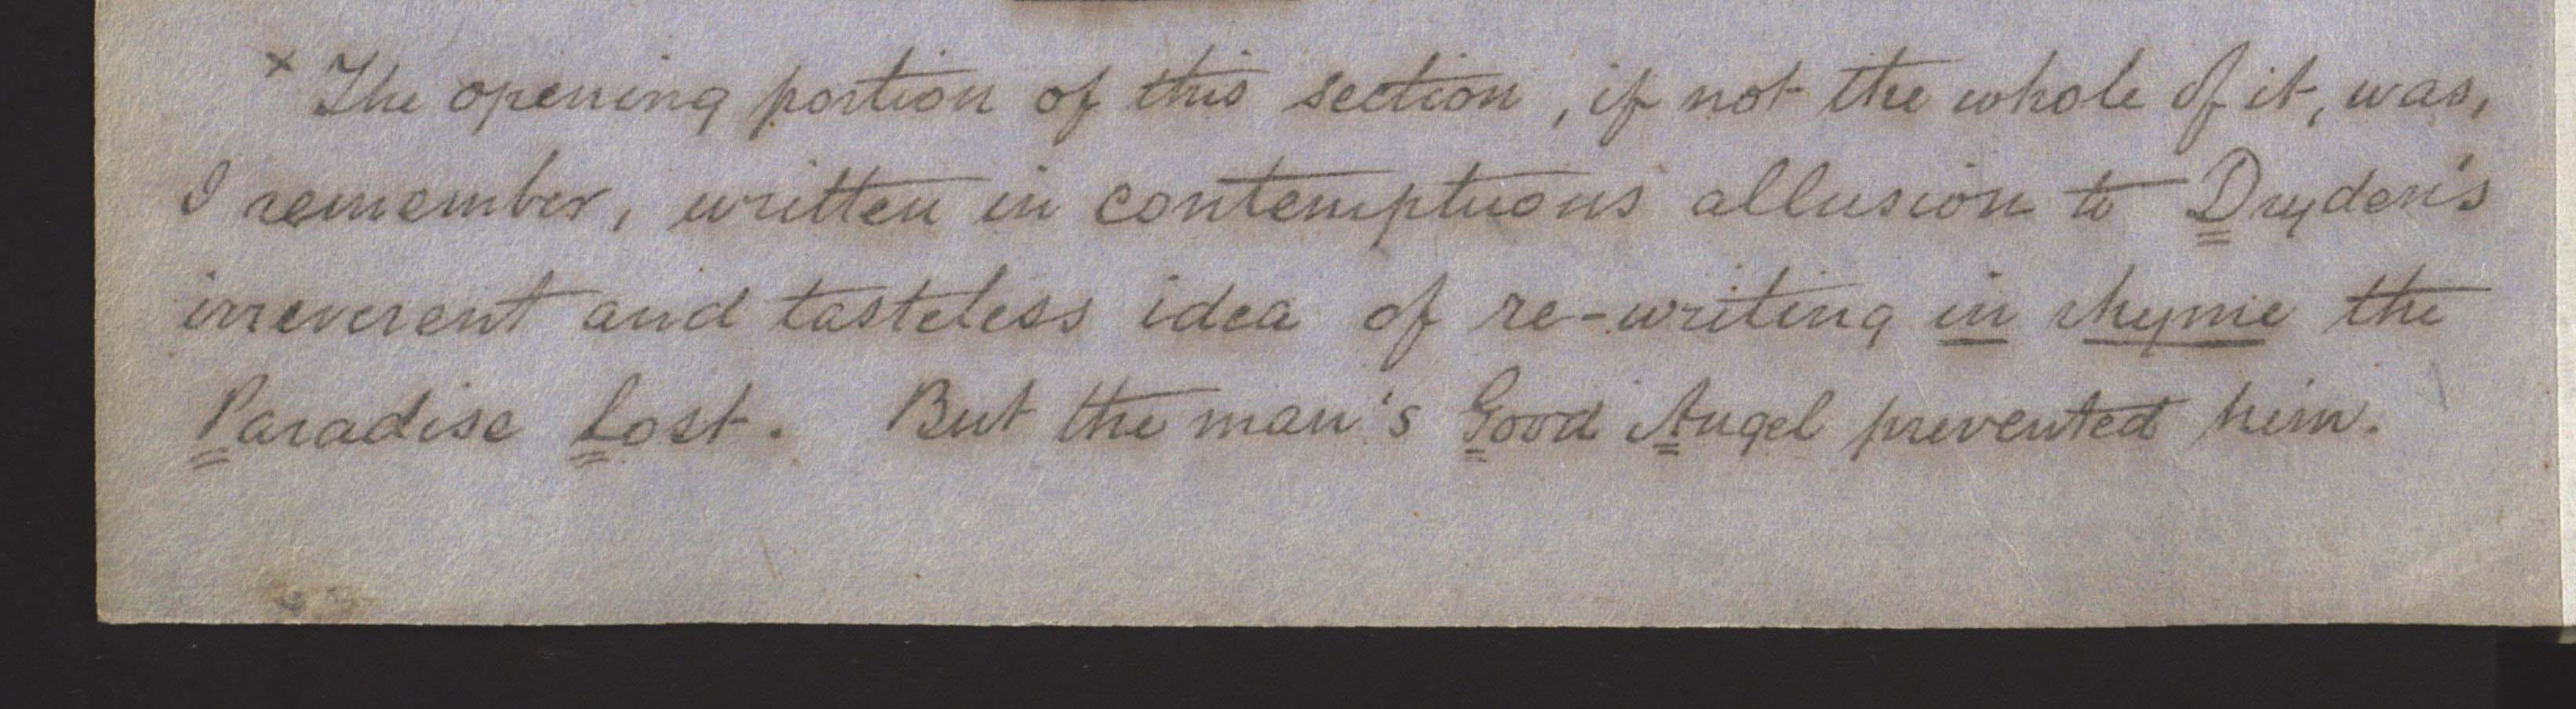 × The opening portion of this section, if not the whole of it, was,
I remember, written in contemptuous allusion to Dryden's
irreverent and tasteless idea of re-writing in rhyme the
Paradise Lost. But the man's Good Angel prevented him.